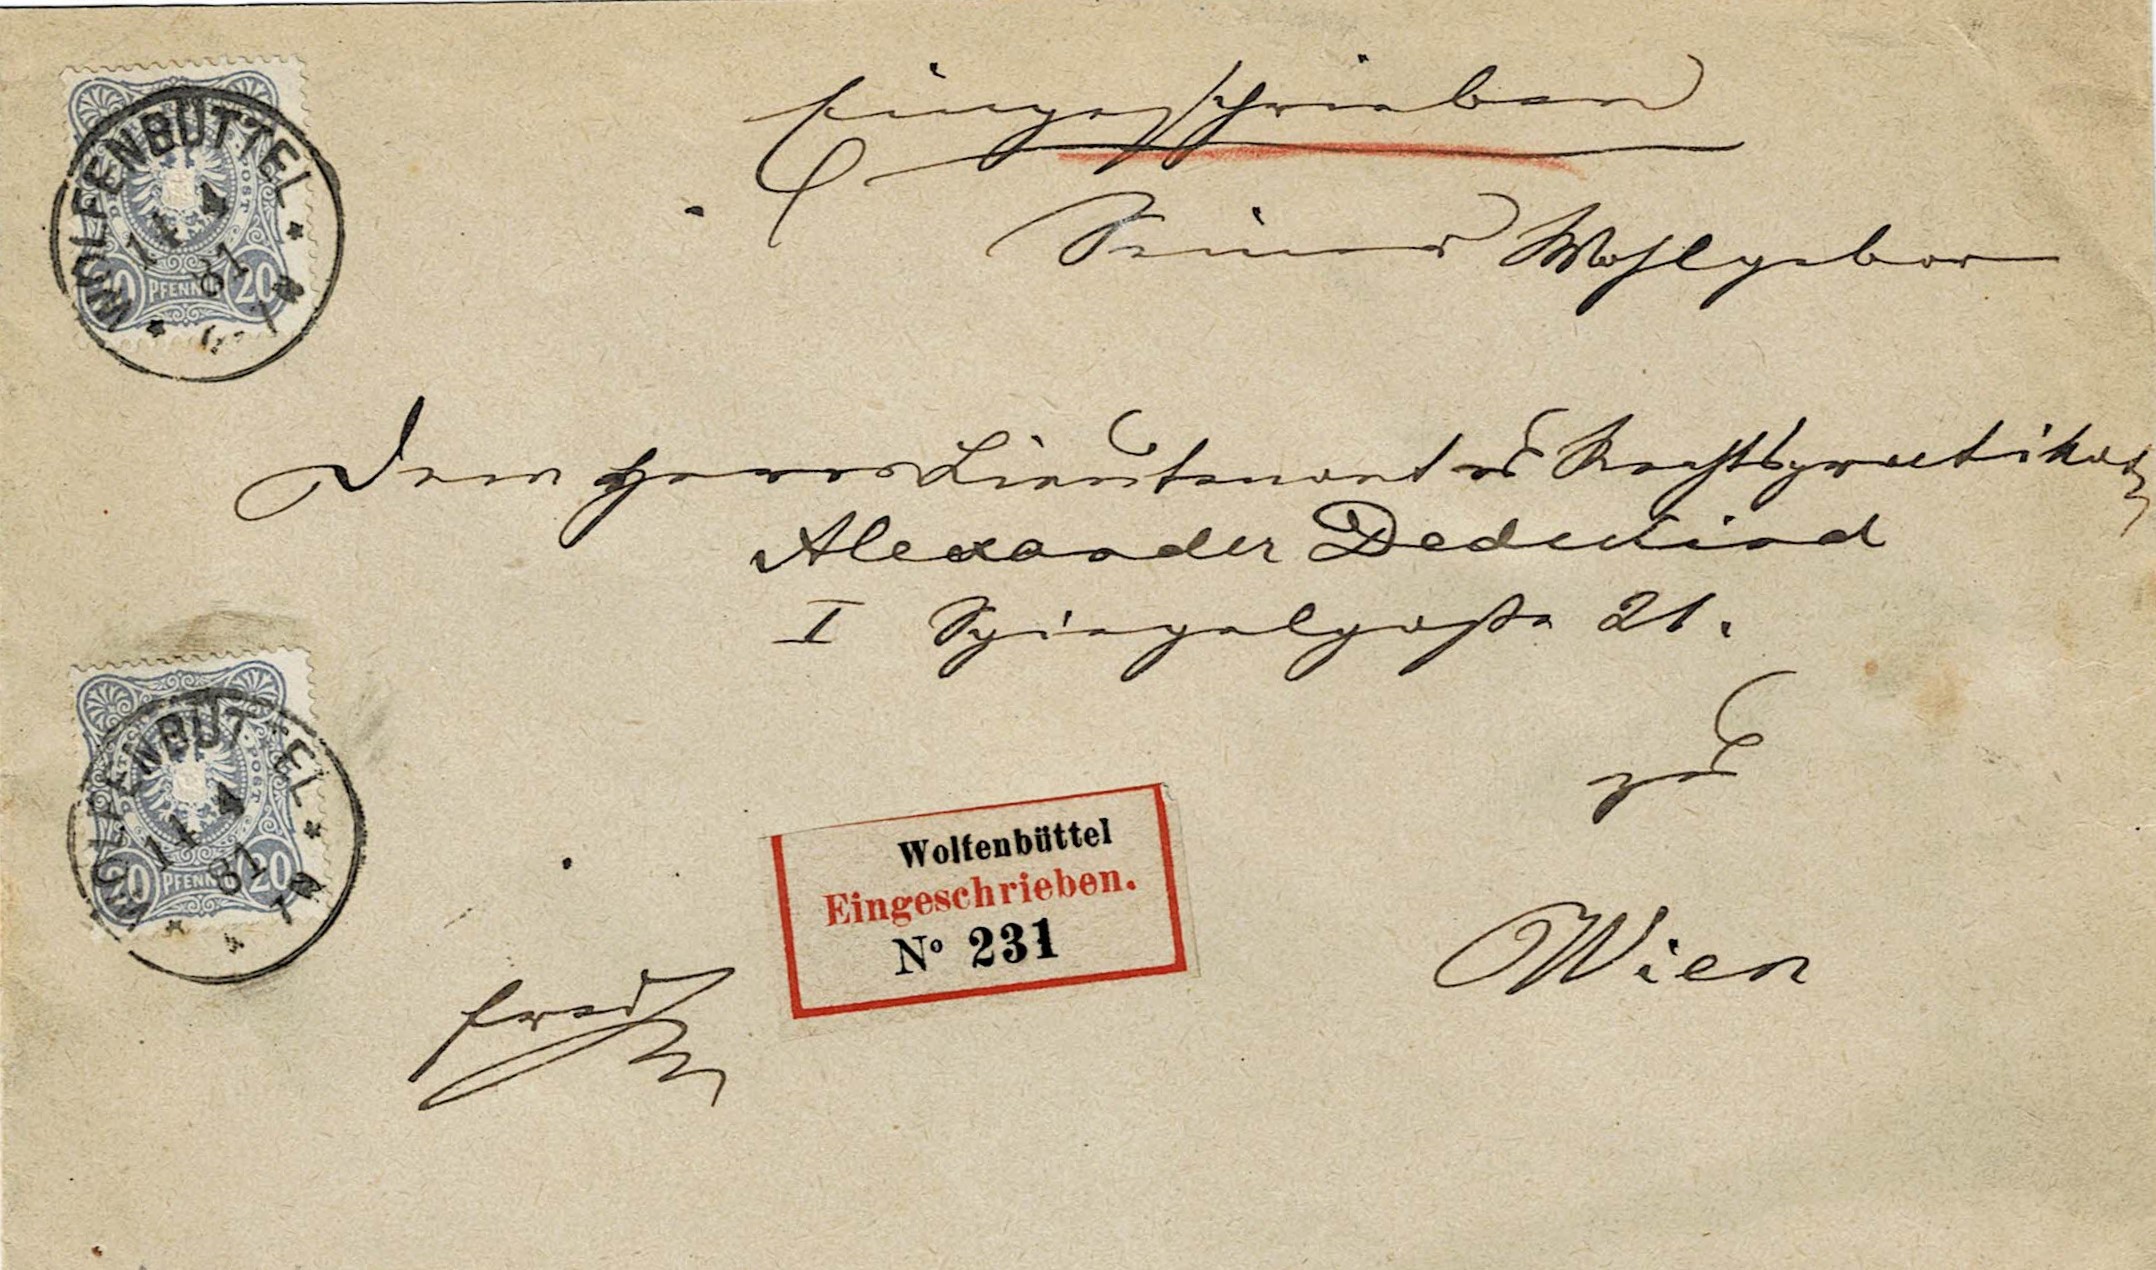 Eingeschrieben
Seiner Wohlgebor
Dem Herrn Lieutenant u Rechtspraktikat
Alexander Dedekind
I Spiegelgasse 21.
zu
Wien
frei
Wolfenbüttel
Eingeschrieben.
No 231
WOLFENBÜTTEL
11 4
81
20 PFENNIG 20
WOLFENBÜTTEL
11 4
81
20 PFENNIG 20